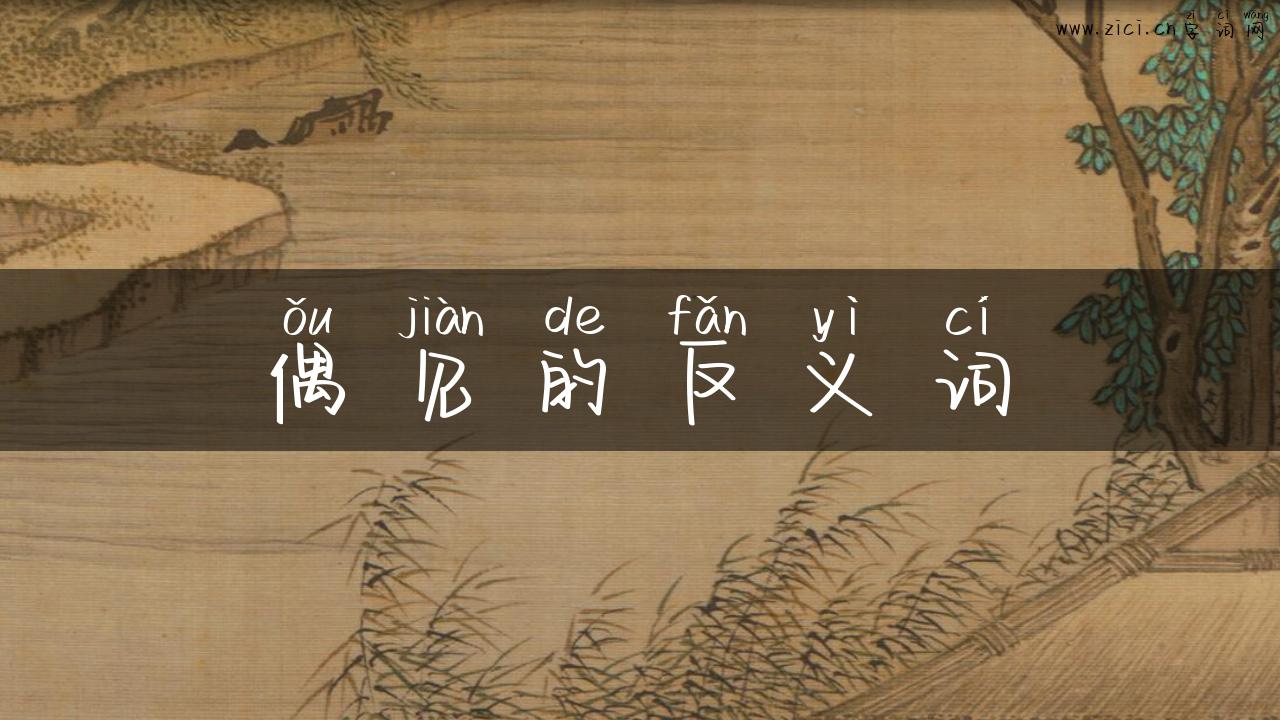 zì cí wǎng
www.zici.cn字词网
ǒu jiàn de fǎn yì cí
偶见的反义词